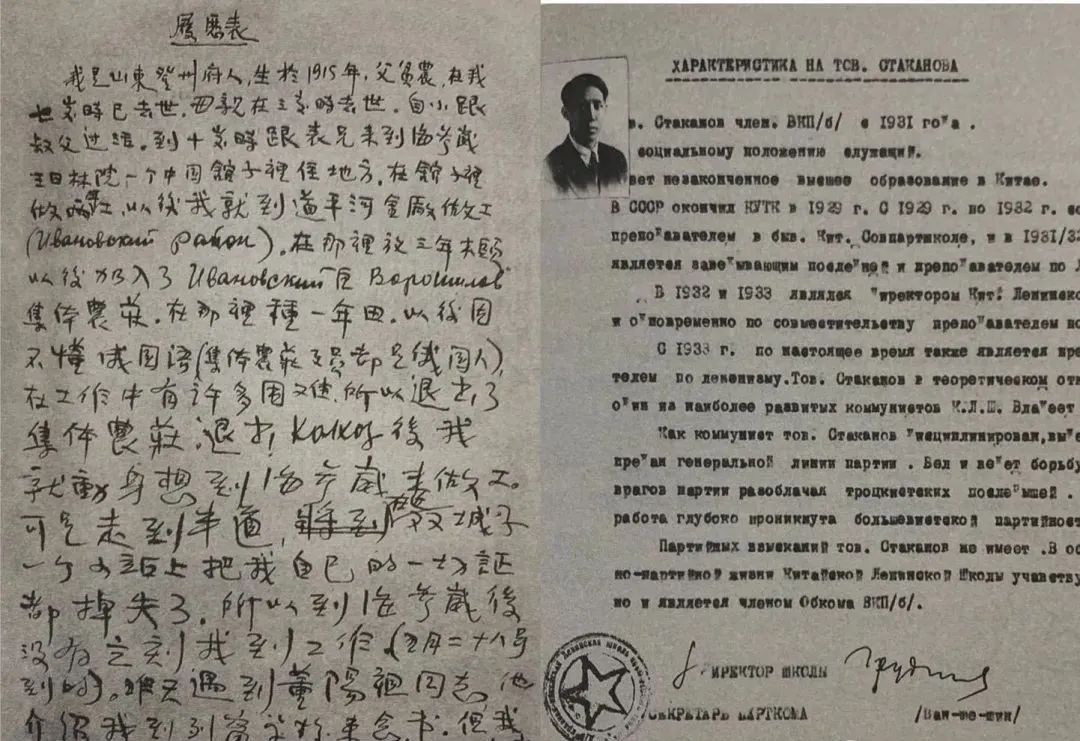 履歷表
我是山東登州府人,生於1915年,父務農,在我
七歲時已去世.母親在三歲時去世.自小跟
叔父过活.到十歲時跟表兄来到海參崴
一个中国館子裡住地方.在館子裡
做 以後我就到道平河金廠做工
(Ивановский район).在那裡 三年
以後加入了 Ивановский 区 Ворошилов
集体農莊.在那裡種一年田.以後因
不懂俄国语(集体農莊 員都是俄国人),
在工作中有許多困难.所以退出了
集体農莊.退出 Колхоз 後我
就動身想到海參崴来做工.
可是走到半道, 双城子
一个 站上把我自己的一切証
都掉失了.所以到海參崴後
没有立刻找到工作(五月二十八号
到的).昨天遇到董陽祖同志.他
介绍我到列 学校来念书.但我
ХАРАКТЕРИСТИКА НА ТОВ. СТАКАНОВА
в. Стаканов член. ВКП/б/ с 1931 го"а .
социальному положению служащий.
еет незаконченное высшее образование в Китае.
В СССР окончил КУТК в 1929 г. С 1929 г. по 1932 г.
препо"авателем в быв. Кит. Совпартшколе, и в 1931/32
является заве"ывающим после"ней и препо"авателем по
В 1932 и 1933 являлся "иректором Кит. Ленинско
и о"новременно по совместительству препо"авателем
С 1933 г. по настоящее время также является пре
телем по ленинизму.Тов. Стаканов в теоретическом от
о"ин из наиболее развитых коммунистов К.Л.Ш. Вла"еет
Как коммунист тов. Стаканов "исциплинирован,вы"е
пре"ан генеральной линии партии . Вел и ве"ет борьбу
врагов партии разоблачая троцкистских после"ышей .
работа глубоко проникнута большевистской партийност
Партийных взысканий тов. Стаканов не имеет .В ос
но-партийной жизни Китайской Ленинской Школы участву
но и является членом Обкома ВКП/б/.
ИРЕКТОР ШКОЛЫ
СЕКРЕТАРЬ ПАРТКОМА /Ван-ше-шин/